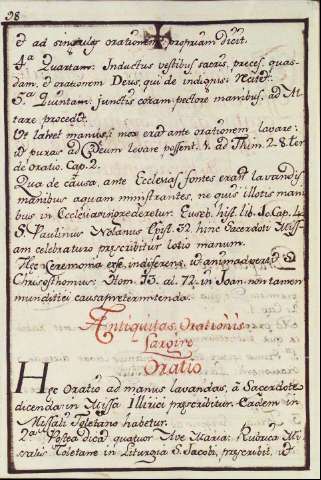 98
et ad singulas orationem propriam dicit.
4.ª Quartam: Inductus vestibus sacris, preces quas-
dam, et orationem Deus, qui de indignis:
5.ª Quintam: junctis coram pectore manibus, ad Al-
tare procedit.
Ot lavet manus, mox erat ante orationem, lavare:
ut puras ad levare possent, V. ad Thim. 2. 8. ter
de oratio. Cap. 2.
Qua de causa, ante Ecclesias fontes erant lavandis
manibus aquam ministrantes, ne quis illotis mani
bus in Ecclesiam ingrederetur. Euseb. hist. lib. Cap. 4.
S. Paulinus Nolanus Epist. 32. hinc Sacerdoti Miss-
am celebraturo prescribitur lotio manum.
Hec Ceremonia esse indiferens, ut animadvertit S.
Chrisosthomus: Hom. 73. al. 72. in Joan. non tamen
munditiei causa pretermitenda.
Antiquitas Orationis
Largire
Oratio
Hec Oratio ad manus lavandas, à Sacerdote
dicenda in Missa Illirici prescribitur. Eadem in
Missali Toletano habetur.
2.ª Postea dicat quatuor Ave Maria: Rubrica Mi
salis Toletane in Liturgia S. Jacobi, prescribit, ut